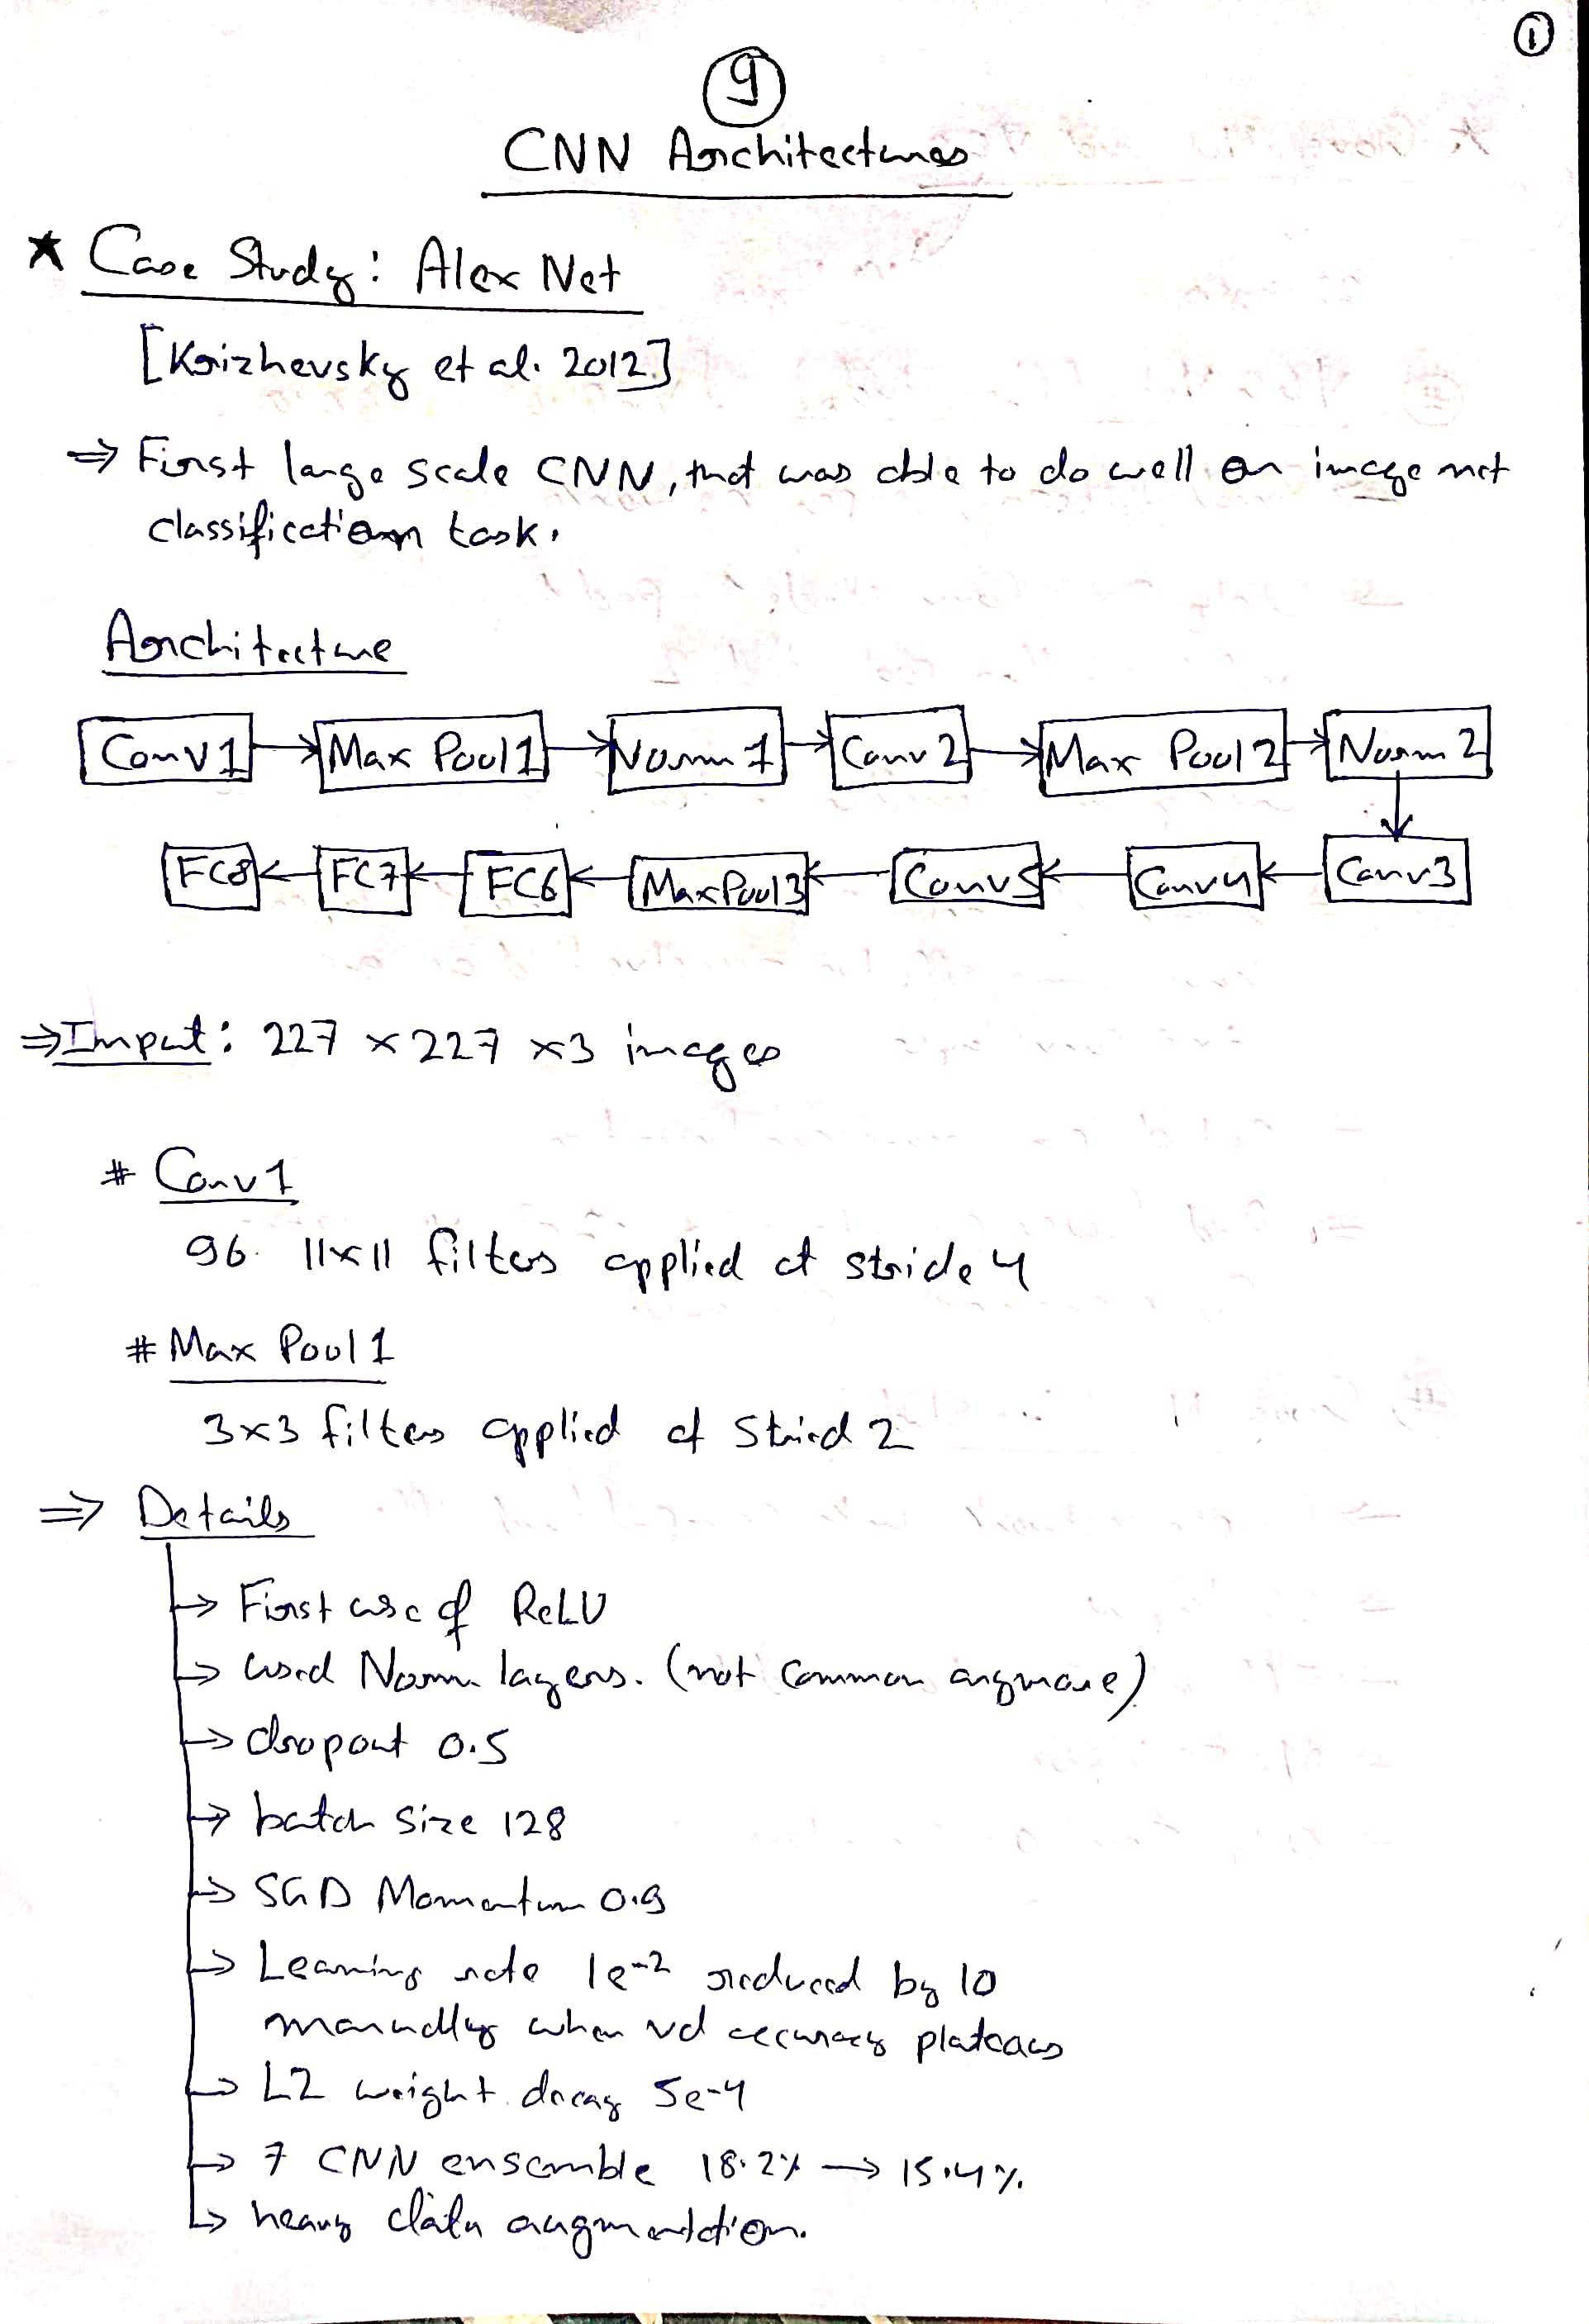 ①
⑨
CNN Architectures
* Case Study: Alex Net
[Krizhevsky et al. 2012]
⇒ First large scale CNN, that was able to do well on image net
classification task.
Architecture
Conv1 → Max Pool1 → Norm1 → Conv2 → Max Pool2 → Norm2
FC8 ← FC7 ← FC6 ← MaxPool3 ← Conv5 ← Conv4 ← Conv3
⇒ Input: 227 × 227 × 3 images
# Conv1
96 11×11 filters applied at stride 4
# Max Pool1
3×3 filters applied at Strid 2
⇒ Details
→ First use of ReLU
→ used Norm layers. (not common anymore)
→ dropout 0.5
→ batch size 128
→ SGD Momentum 0.9
→ Learning rate 1e-2 reduced by 10
manually when val accuracy plateaus
→ L2 weight decay 5e-4
→ 7 CNN ensemble 18.2% → 15.4%
→ heavy data augmentation.